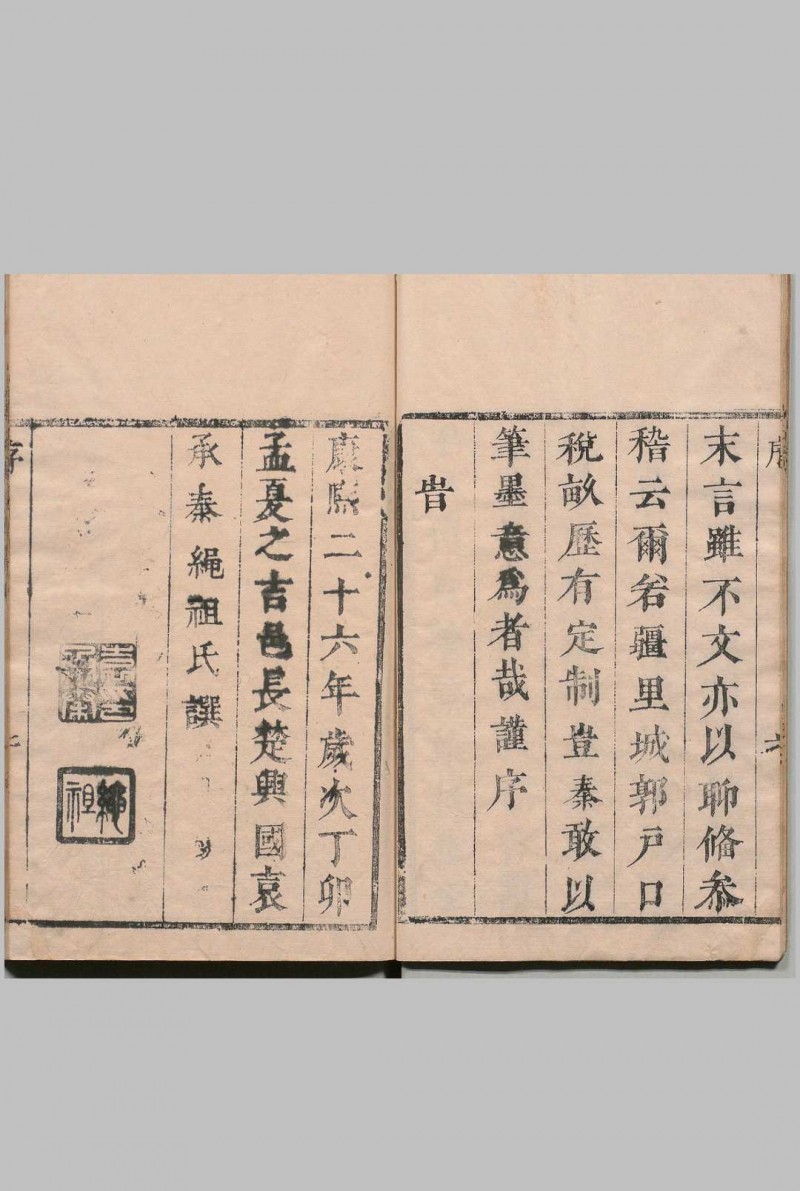 序
末言雖不文亦以聊俻叅
稽云爾若疆里城郭戸口
稅畝歷有定制豈秦敢以
筆墨意爲者哉謹序
旹
康熙二十六年歲次丁卯
孟夏之吉邑長楚興國袁
承秦繩祖氏譔
繩祖